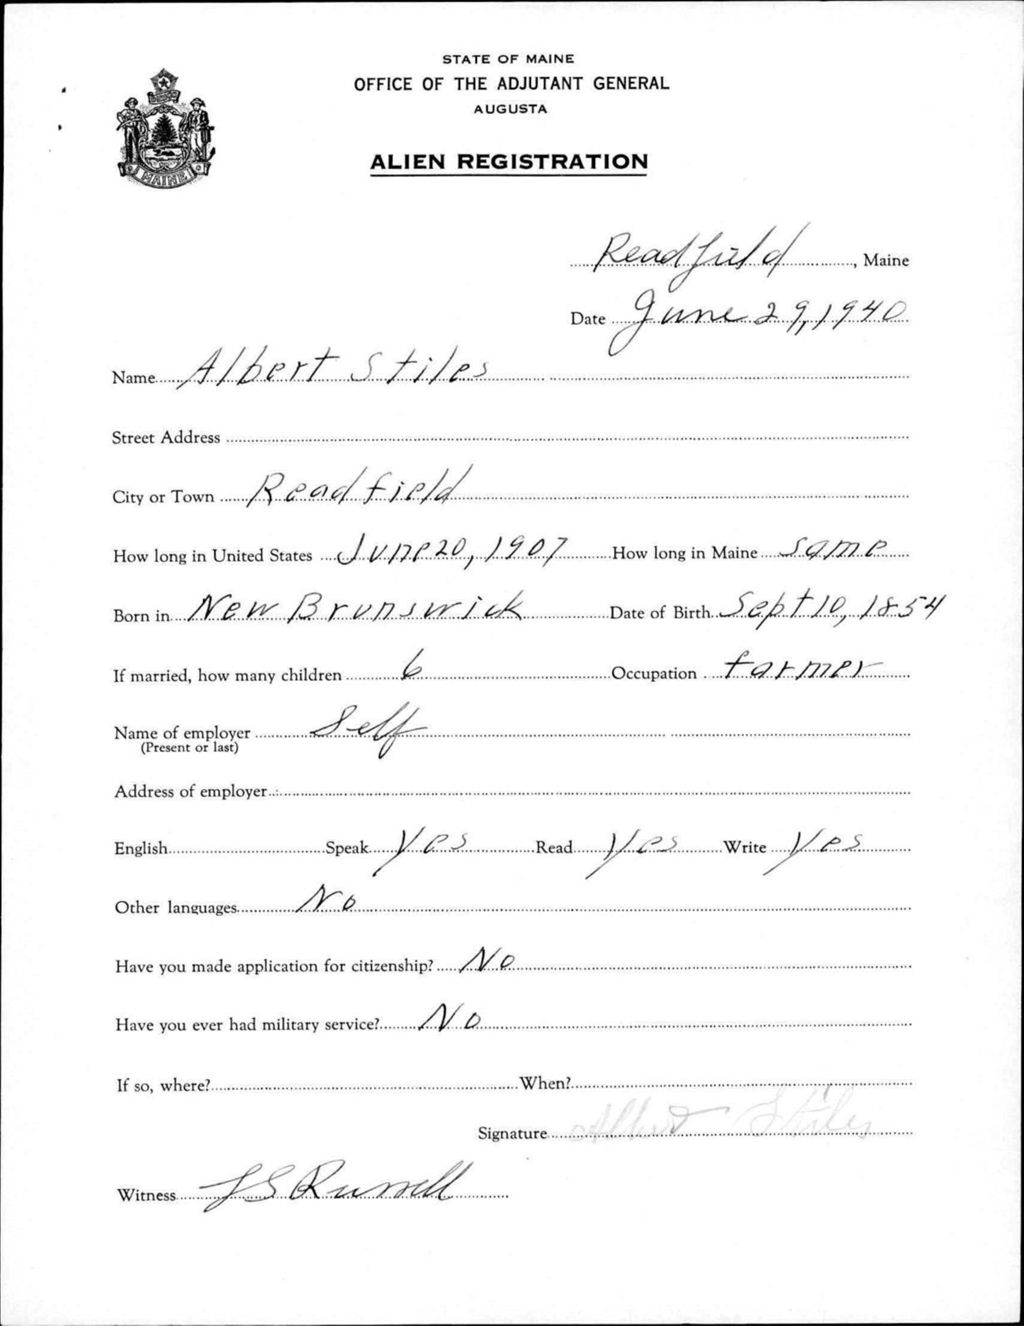 STATE OF MAINE
OFFICE OF THE ADJUTANT GENERAL
AUGUSTA
MAINE
ALIEN REGISTRATION
Readfield, Maine
Date June 29, 1940
Name Albert Stiles
Street Address
City or Town Readfield
How long in United States June 20, 1907 How long in Maine same
Born in New Brunswick Date of Birth Sept 10, 1854
If married, how many children 6 Occupation farmer
Name of employer Self
(Present or last)
Address of employer
English Speak Yes Read Yes Write Yes
Other languages No
Have you made application for citizenship? No
Have you ever had military service? No
If so, where? When?
Signature Albert Stiles
Witness Russell